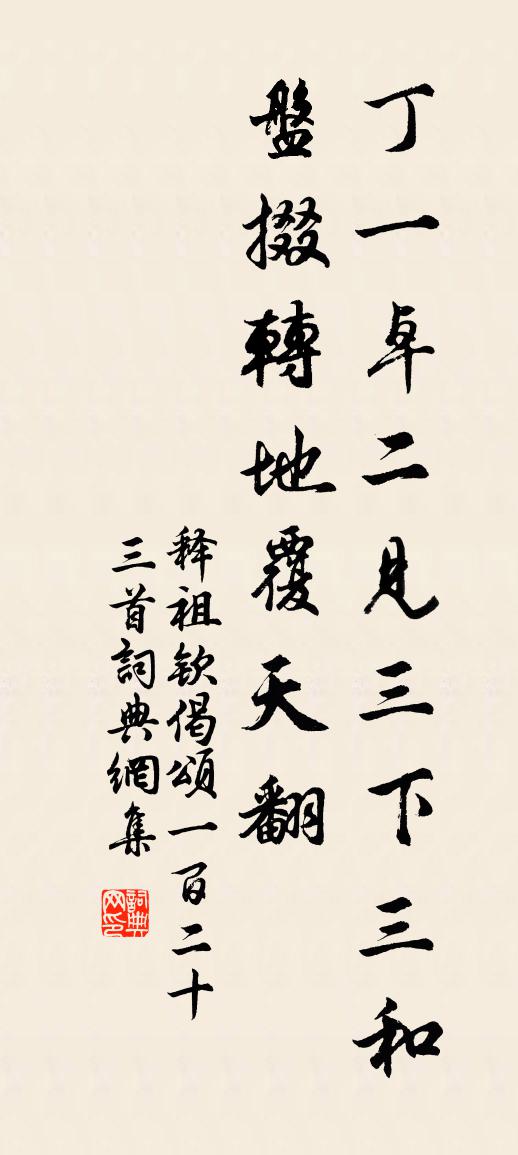 丁一卓二見三下三和
盤掇轉地覆天翻
释祖欽偈頌一百二十
三首詞典網集
詞典
网印